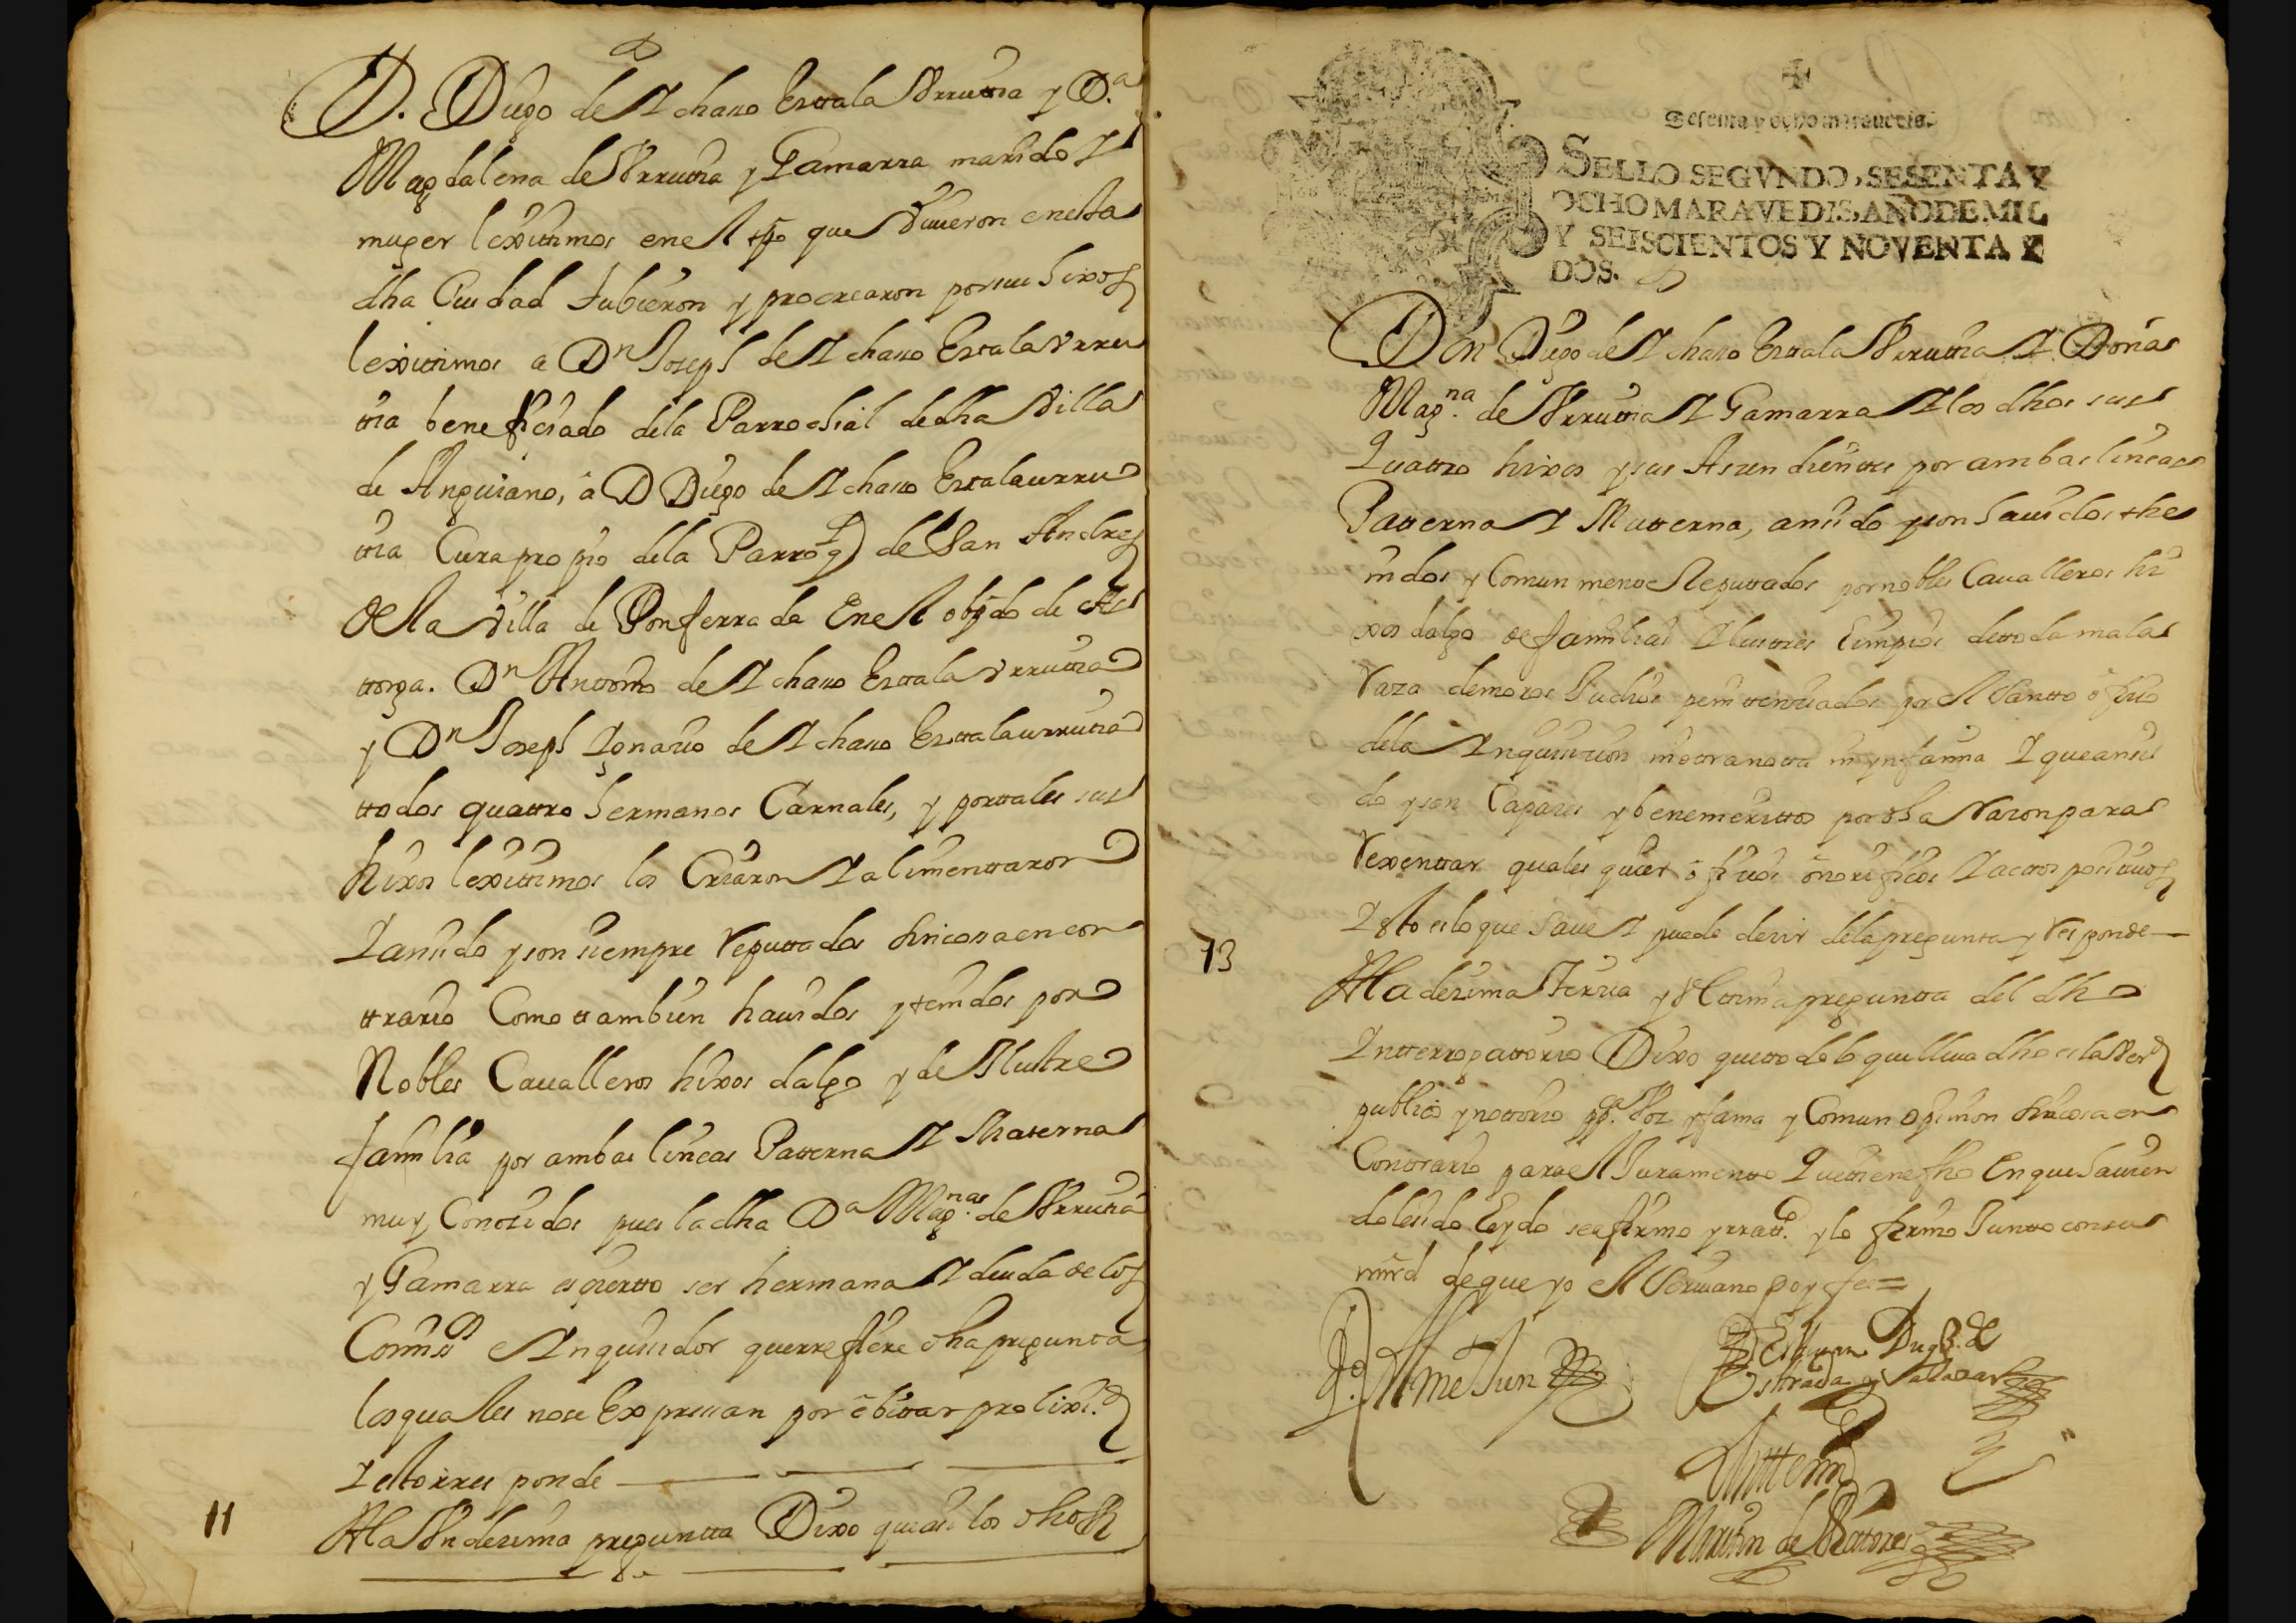 D. Diego de Ichaso Estala Vrruttia y D.ª
Magdalena de Vrruttia y Gamarra marido I
muger lexitimos en el tpo que viuieron en esta
dha Ciudad tubieron y procrearon por sus hixos
lexitimos a Dn Joseph de Ichaso Estala Vrru
ttia beneficiado dela Parrochial de dha Villa
de Anguiano, a D Diego de Ichaso Estala urru
ttia Cura propio dela Parroql de San Andres
de la Villa de Ponferrada En el obpdo de As
ttorga. Dn Anttonio de Ichaso Estala Vrruttia
y Dn Joseph Ignacio de Ichaso Estala urruttia
ttodos quattro hermanos Carnales, y por tales sus
hixos lexitimos los Criaron I alimenttaron
I an sido y son siempre reputtados sin cosa en con
ttrario Como ttambien hauidos y tenidos por
Nobles Caualleros hixos dalgo y de Ilustre
familia por ambas lineas Patterna I Materna
muy Conozidos pues la dha Da Magna de Vrruttia
y Gamarra es zierto ser hermana I deuda de los
Comiss Inquisidor que rrefiere dha pregunta
los quales no se Expressan por ebittar prolixid
I esto rresponde
11 A la Vndezima preguntta Dixo que asi los dhos
Sesenta y ocho marauedis.
SELLO SEGVNDO, SESENTA Y
OCHO MARAVEDIS, AÑO DE MIL
Y SEISCIENTOS Y NOVENTA Y
DOS.
Don Diego de Ichaso Estala Vrruttia I Doña
Magna de Vrruttia I Gamarra I los dhos sus
Quattro hixos y sus Aszendientes por ambas lineas
Patterna I Matterna, an sido y son hauidos the
nidos y Comunmente Reputtados por nobles Caualleros hi
xos dalgo de familias Ilustres Limpios de ttoda mala
raza de moros Judios penittenziados por el Santto ofizio
dela Inquisizion ni ottra notta ni ynfamia I que an si
do y son Capazes y benemerittos por dha razon para
rexenttar quales quier ofizios onorificos I acttos positiuos
I esto es lo que saue I puede dezir dela pregunta y responde
13 A la dezima terzia y vlttima preguntta del dho
Intterrogattorio Dixo que ttodo lo que lleua dho es la Verd
publico y nottorio ppca Voz y fama y Comun opinion sin cosa en
Conttrario para el Juramentto Que ttiene fho En que hauien
dole sido leydo se afirmo y rrattco y lo firmo Juntto con su
mrd de que yo el Escriuano doy fee=
Estrada y Salazar
Antte mi
Martin de